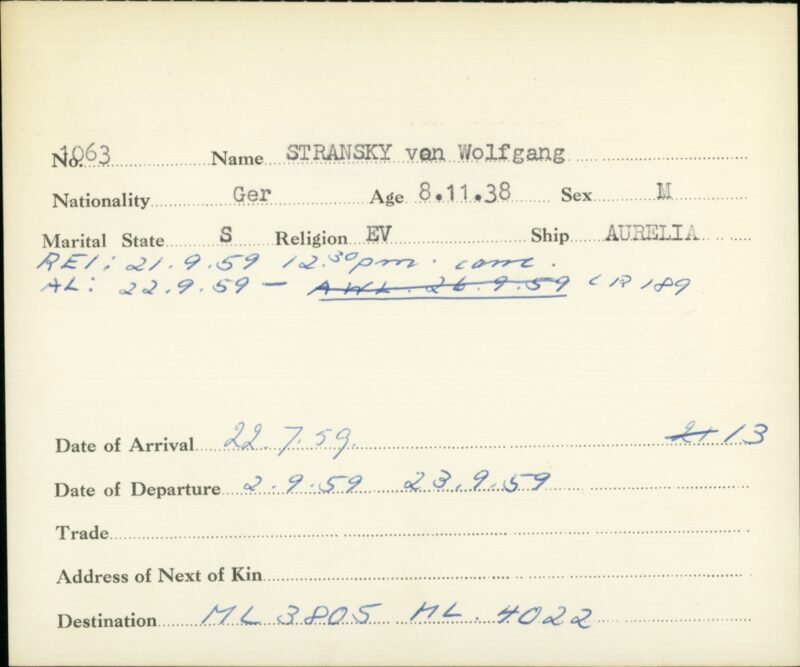 No. 1063 Name STRANSKY von Wolfgang
Nationality Ger Age 8.11.38 Sex M
Marital State S Religion EV Ship AURELIA
REI: 21.9.59 12.30pm. cont.
AL: 22.9.59 - AWL. 26.9.59 LR 189
Date of Arrival 22.7.59. 21 13
Date of Departure 2.9.59 23.9.59
Trade
Address of Next of Kin
Destination ML 3805 ML. 4022